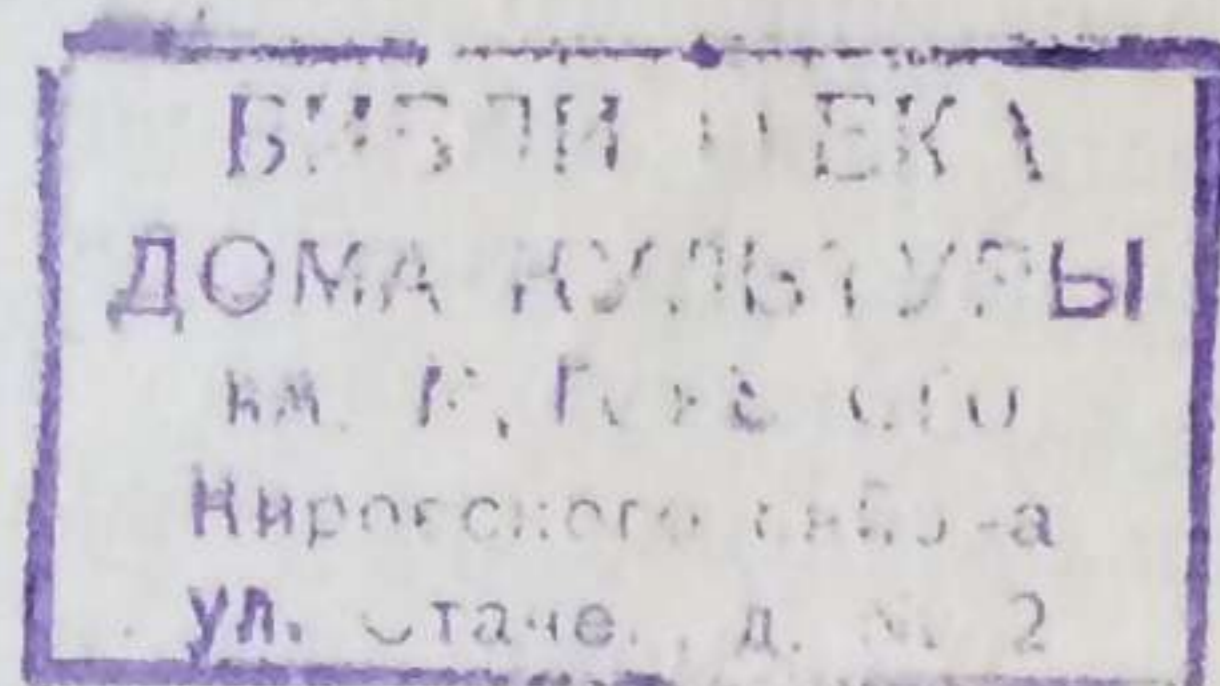 БИБЛИОТЕКА
ДОМА КУЛЬТУРЫ
им. М. Горького
Кировского
ул. Стачек, д. № 2